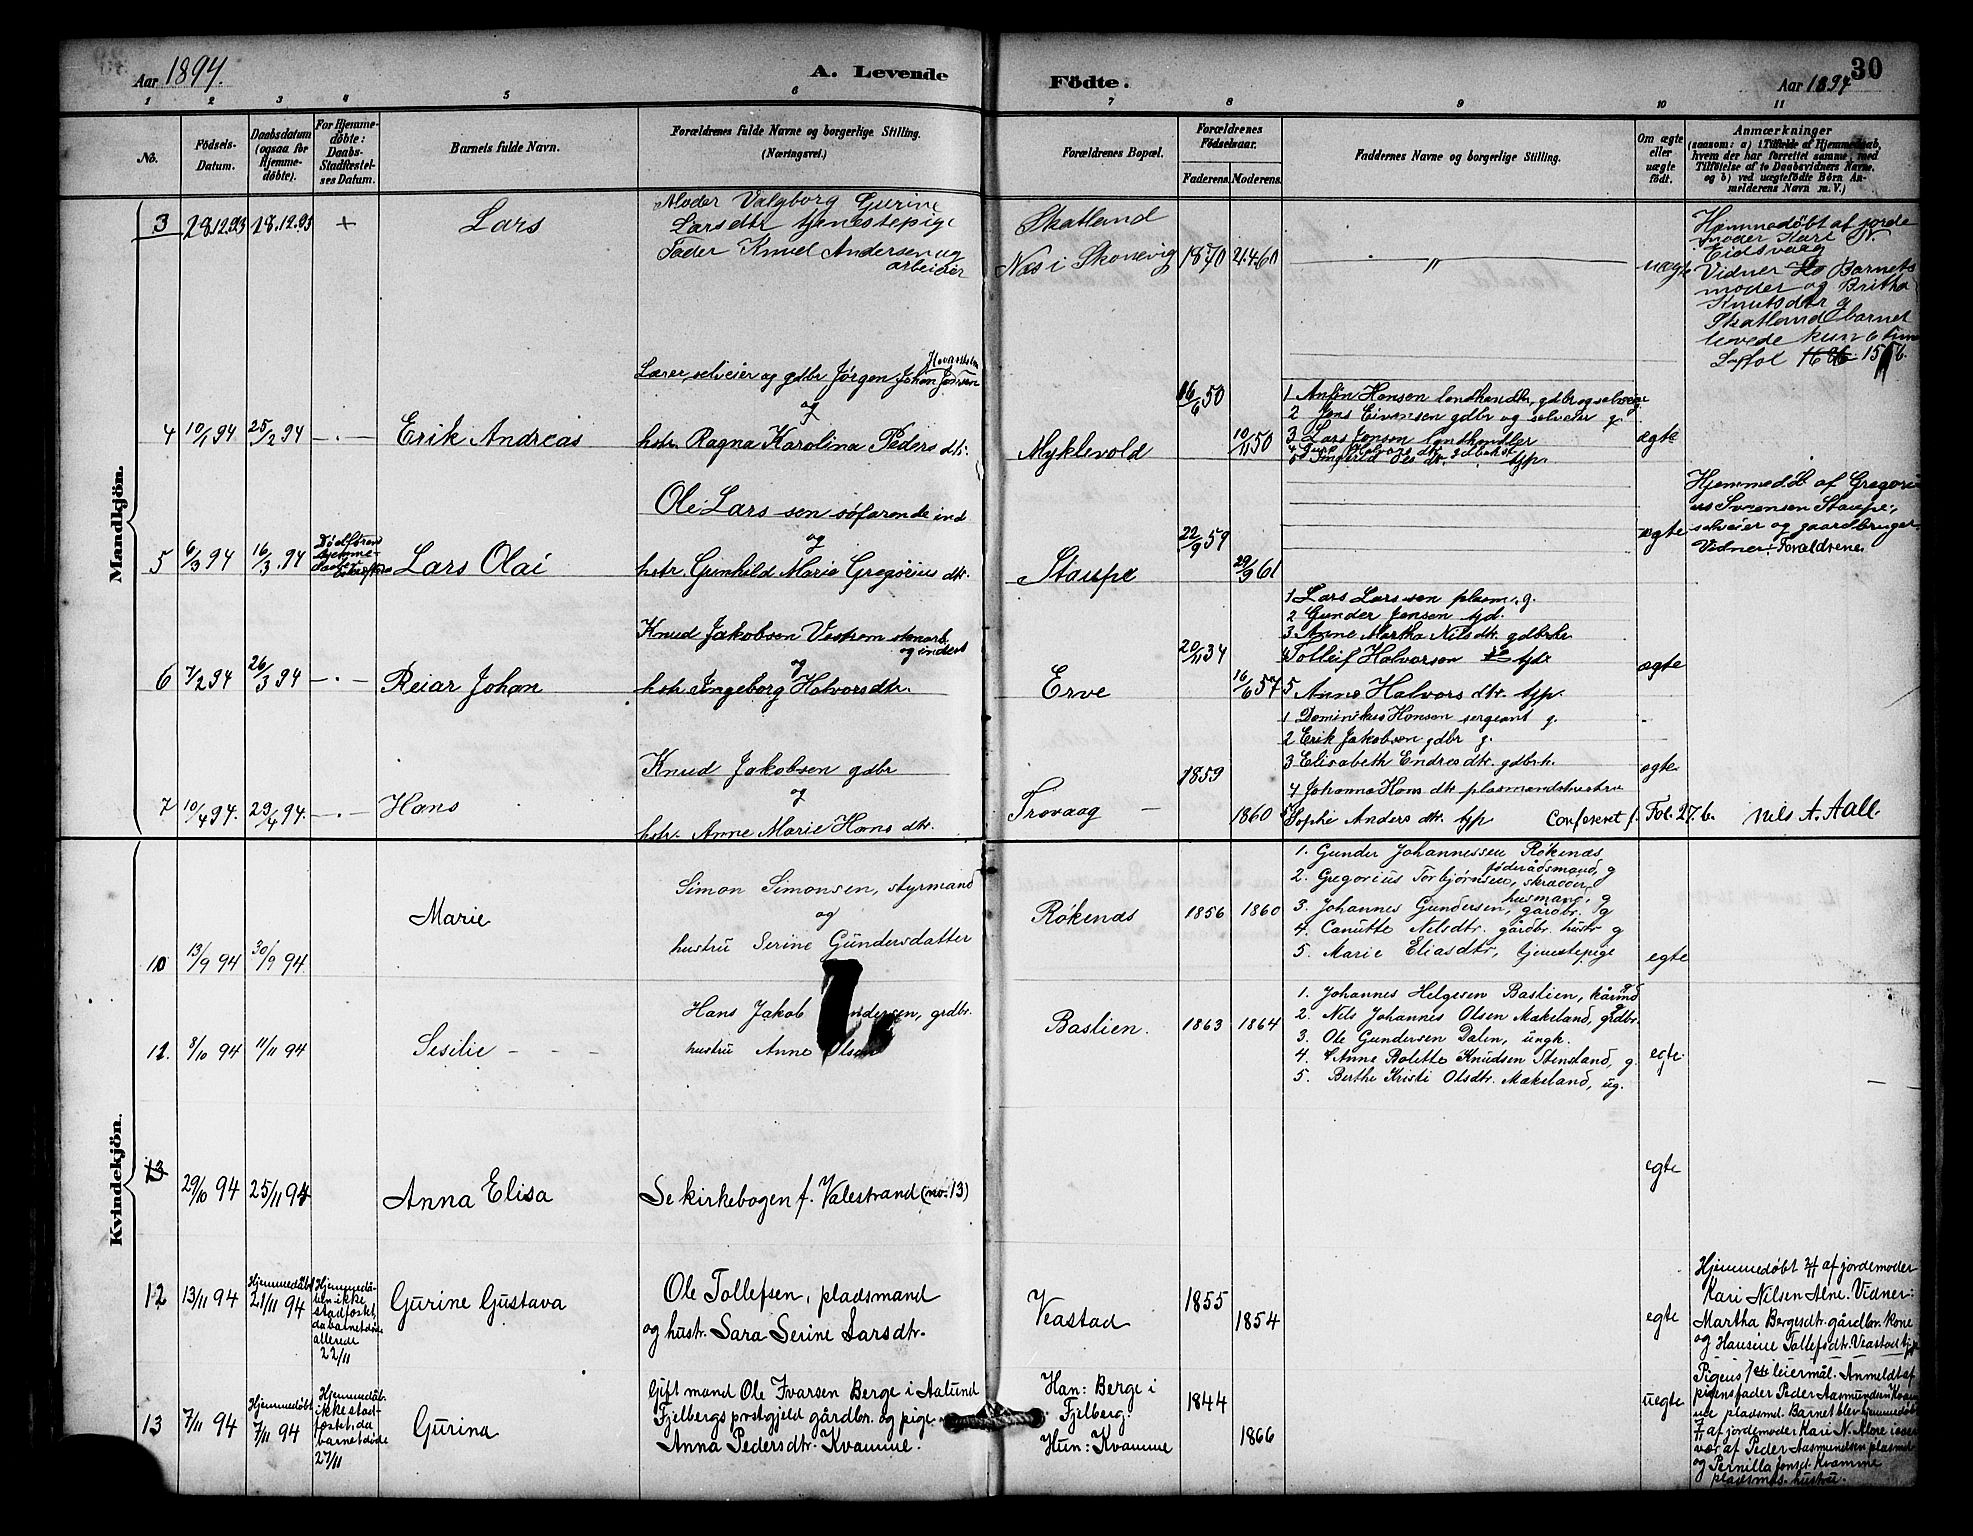 Aar 1894.
A. Levende Födte.
Aar 1894
30
1 2 3 4 5 6 7 8 9 10 11
No.
Födsels-Datum.
Daabsdatum (ogsaa for Hjemme-döbte).
For Hjemme-döbte: Daabs-Stadfæstel-ses Datum.
Barnets fulde Navn.
Forældrenes fulde Navne og borgerlige Stilling. (Næringsvei.)
Forældrenes Bopæl.
Forældrenes Födselsaar.
Faderens. Moderens.
Faddernes Navne og borgerlige Stilling.
Om ægte eller uægte födt.
Anmærkninger
(saasom: a) i Tilfælde af Hjemmedaab, hvem der har forrettet samme, med Tilföielse af to Daabsvidners Navne, og b) ved uægtefödte Börn An-melderens Navn m. V.)
Mandkjön.
3 28.12.93 28.12.93 + Lars
Moder Valgborg Gurine
Larsdtr tjenestepige
Fader Knud Andersen ug
arbeider
Skatland
Næs i Skonevig 1870 21.4.60 " uægte
Hjemmedøbt af jorde
moder Kari N.
Eidsvaag
Vidner Barnets
moder og Britha
Knutsdtr g
Skatland barnet
levede kun 6 tim
4 10/1 94 25/2 94 —.— Erik Andreas
Lærer, selveier og gdbr Jörgen Johan Jansen
og
hstr. Ragna Karolina Peders dtr.
Myklevold 16/6 50 10/11 50
1 Anfin Hansen landhandlr, gdbr og selveier g.
2 Jens Eivensen gdbr og selveier g.
3 Lars Jonsen landhandler
5 Ingerid Ols dtr. tjp.
ægte
5 6/3 94 16/3. 94 Lars Olai
Ole Lars sen søfarende ind
og
hstr. Gunhild Marie Gregorius dtr.
Staupe 22/9 59 29/9 61 ægte
Hjemmedøb af Gregori
us Svensen Staupe,
selveier og gaardbruger
Vidner. Forældrene
6 7/2 94 26/3 94 —.— Reiar Johan
Knud Jakobsen Vestrem stenarb.
og inderst
og
hstr. Ingeborg Halvorsdtr.
Erve 20/11 34 16/6 57
1 Lars Larssen plasm. g.
2 Gunder Jensen tjd.
3 Anne Martha Nilsdtr. gdbrhr.
4 Tolleif Halvorsen tjdr
5 Anne Halvors dtr. tjp.
ægte
7 10/4 94. 29/4 94. —.— Hans
Knud Jakobsen gdbr
og
hstr. Anne Marie Hans dtr.
Trovaag — 1859 1860
1 Dominikus Hansen sergeant g.
2 Erik Jakobsen gdbr g.
3 Elisabeth Endresdtr. gdbrh.
4 Johanna Hans dtr plasmandshustru
5 Sophi Anders dtr tjp
ægte
Confereret f. Fol. 27. b. Nils A. Aall.
Kvindekjön.
10 13/9 94 30/9 94 Marie
Simon Simonsen, styrmand
og
hustru Serine Gundersdatter
Røkenes 1856 1860
1. Gunder Johannessen Røkenes
föderådsmand, g
2. Gregorius Torbjørnsen, skrædder,
husmand, g
3. Johannes Gundersen, gårdbr. g
4. Canutte Nilsdtr. gårdbr. hustr g
5. Marie Eliasdtr, tjenestepige
egte
11. 8/10 94 11/11 94 Sesilie - - -
Hans Jakob ndersen, grdbr.
hustru Anne Olsen
Bastlien. 1863 1864
1. Johannes Helgesen Bastlien, kårmd g
2. Nils Johannes Olsen Mækeland, grdbr. g
3. Ole Gundersen Dalen, ungk.
4. Anne Bolette Knudsen Stensland, g.
5. Berthe Kristi Olsdtr. Mækeland, ug.
egte
13 29/10 94 25/11 94 Anna Elisa
Se kirkebogen f. Valestrand (no. 13)
egte
12 13/11 94 Hjemmedåbt 21/11 94
Hjemmedå-
ben ikke
stadfæstet,
da barnet døde
allerede
22/11
Gurine Gustava
Ole Tollefsen, pladsmand
og hustr. Sara Serine Larsdtr.
Veastad 1855 1854 egte
Hjemmedøbt 21/11 af jordemoder
Kari Nilsen Alne. Vidner:
Martha Bergesdtr. gårdbr. kone
og Hansine Tollefsdtr. Veastad
13 7/11 94 Hjemmedøbt 7/11 94
Hjemmedåb.
ikke stad-
fæstet, da
barnet døde
27/11
Gurina
Gift mand Ole Ivarsen Berge i Aalund
Fjelbergs prestgjeld gårdbr. og pige
Anna Pedersdtr. Kvamme.
Han: Berge i
Fjelberg.
Hun: Kvamme
1844 1866 uegte
Pigens 1ste leiermål. Anmeldt af
pigens fader Peder Aasmundsen Kvam
me pladsmd. Barnet blev hjemmedøbt
7/11 af jordemoder Kari N. Alne i over
vær af Peder Aasmundsen pladsmd
og Pernilla Jonsd. Kvamme
pladsmds. hustru.